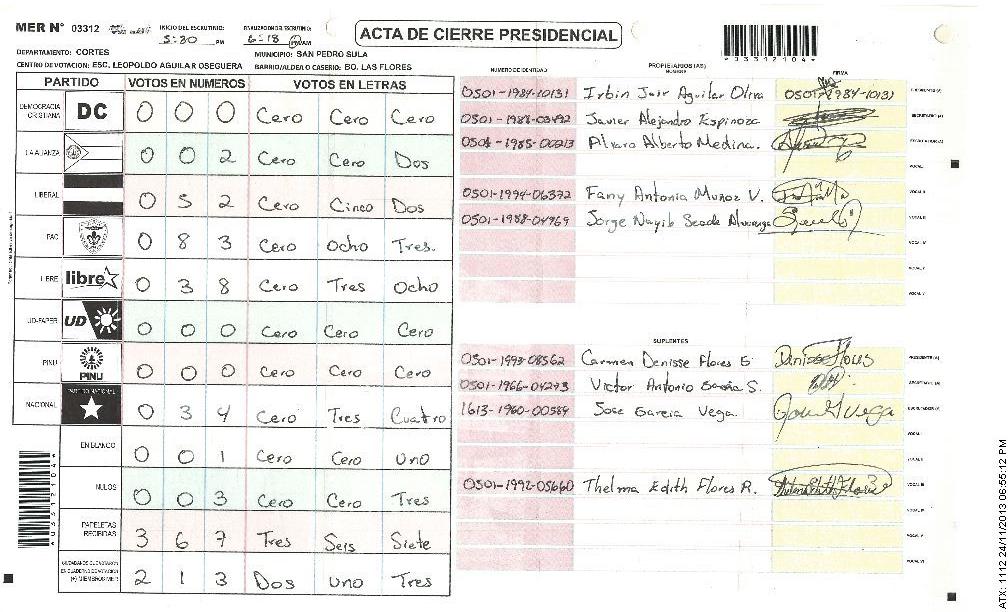 MER N° 03312 INICIO DEL ESCRUTINIO: 5:30 PM FINALIZACION DEL ESCRUTINIO: 6:18 PM/AM
ACTA DE CIERRE PRESIDENCIAL
*03312104*
DEPARTAMENTO: CORTES MUNICIPIO: SAN PEDRO SULA
CENTRO DE VOTACION: ESC. LEOPOLDO AGUILAR OSEGUERA BARRIO/ALDEA O CASERIO: BO. LAS FLORES
PARTIDO VOTOS EN NUMEROS VOTOS EN LETRAS
DEMOCRACIA CRISTIANA DC 0 0 0 Cero Cero Cero
LA ALIANZA 0 0 2 Cero Cero Dos
LIBERAL 0 5 2 Cero Cinco Dos
PAC 0 8 3 Cero Ocho Tres.
LIBRE libre 0 3 8 Cero Tres Ocho
UD-FAPER UD 0 0 0 Cero Cero Cero
PINU PINU 0 0 0 Cero Cero Cero
NACIONAL PARTIDO NACIONAL 0 3 4 Cero Tres Cuatro
EN BLANCO 0 0 1 Cero Cero Uno
NULOS 0 0 3 Cero Cero Tres
PAPELETAS RECIBIDAS 3 6 7 Tres Seis Siete
CIUDADANOS QUE VOTARON EN CUADERNO DE VOTACION (+) MIEMBROS MER 2 1 3 Dos uno Tres
*03312104*
NUMERO DE IDENTIDAD PROPIETARIOS (AS) NOMBRE FIRMA
0501-1984-10131 Irbin Jair Aguilar Oliva 0501-1984-10131 PRESIDENTE (A)
0501-1988-03492 Javier Alejandro Espinoza SECRETARIO (A)
0501-1985-00213 Alvaro Alberto Medina. ESCRUTADOR (A)
VOCAL I
0501-1994-06372 Fany Antonia Muñoz V. VOCAL II
0501-1988-04969 Jorge Nayib Seade Alvarenga VOCAL III
VOCAL IV
VOCAL V
VOCAL VI
SUPLENTES
0501-1993-08562 Carmen Denisse Flores G Denisse Flores PRESIDENTE (A)
0501-1966-04273 Victor Antonio S. SECRETARIO (A)
1613-1960-00589 Jose Garcia Vega. Jose G Vega ESCRUTADOR (A)
VOCAL I
VOCAL II
0501-1992-05660 Thelma Edith Flores R. VOCAL III
VOCAL IV
VOCAL V
VOCAL VI
ATX: 1112 24/11/2013 06:55:12 PM